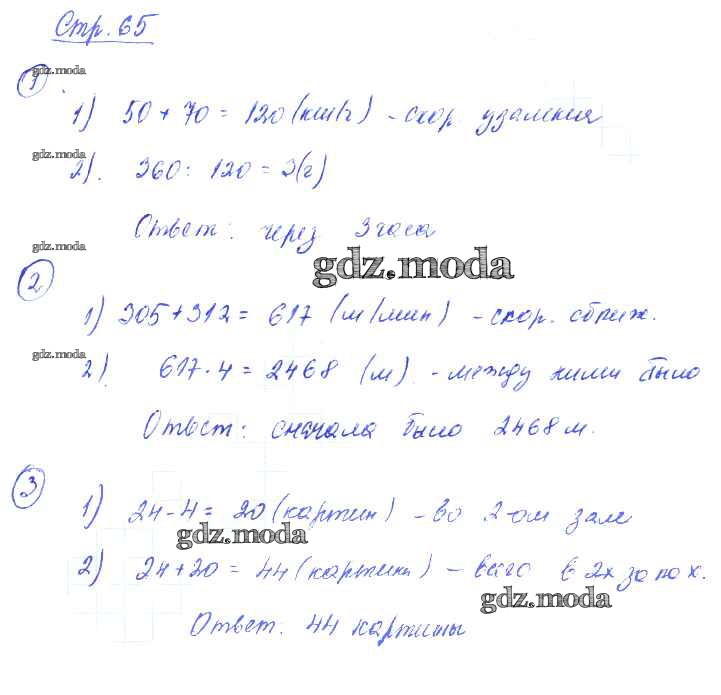 Стр. 65
gdz.moda
1
1) 50 + 70 = 120 (км/ч) - скор. удаления
gdz.moda
2). 360 : 120 = 3(ч)
Ответ: через 3 часа
gdz.moda
gdz.moda
2
1) 305 + 312 = 617 (м/мин) - скор. сближ.
gdz.moda
2) 617 · 4 = 2468 (м) - между ними было
Ответ: сначала было 2468 м.
3
1) 24 - 4 = 20 (картин) - во 2-ом зале
gdz.moda
2) 24 + 20 = 44 (картины) - всего в 2х залах.
gdz.moda
Ответ: 44 картины